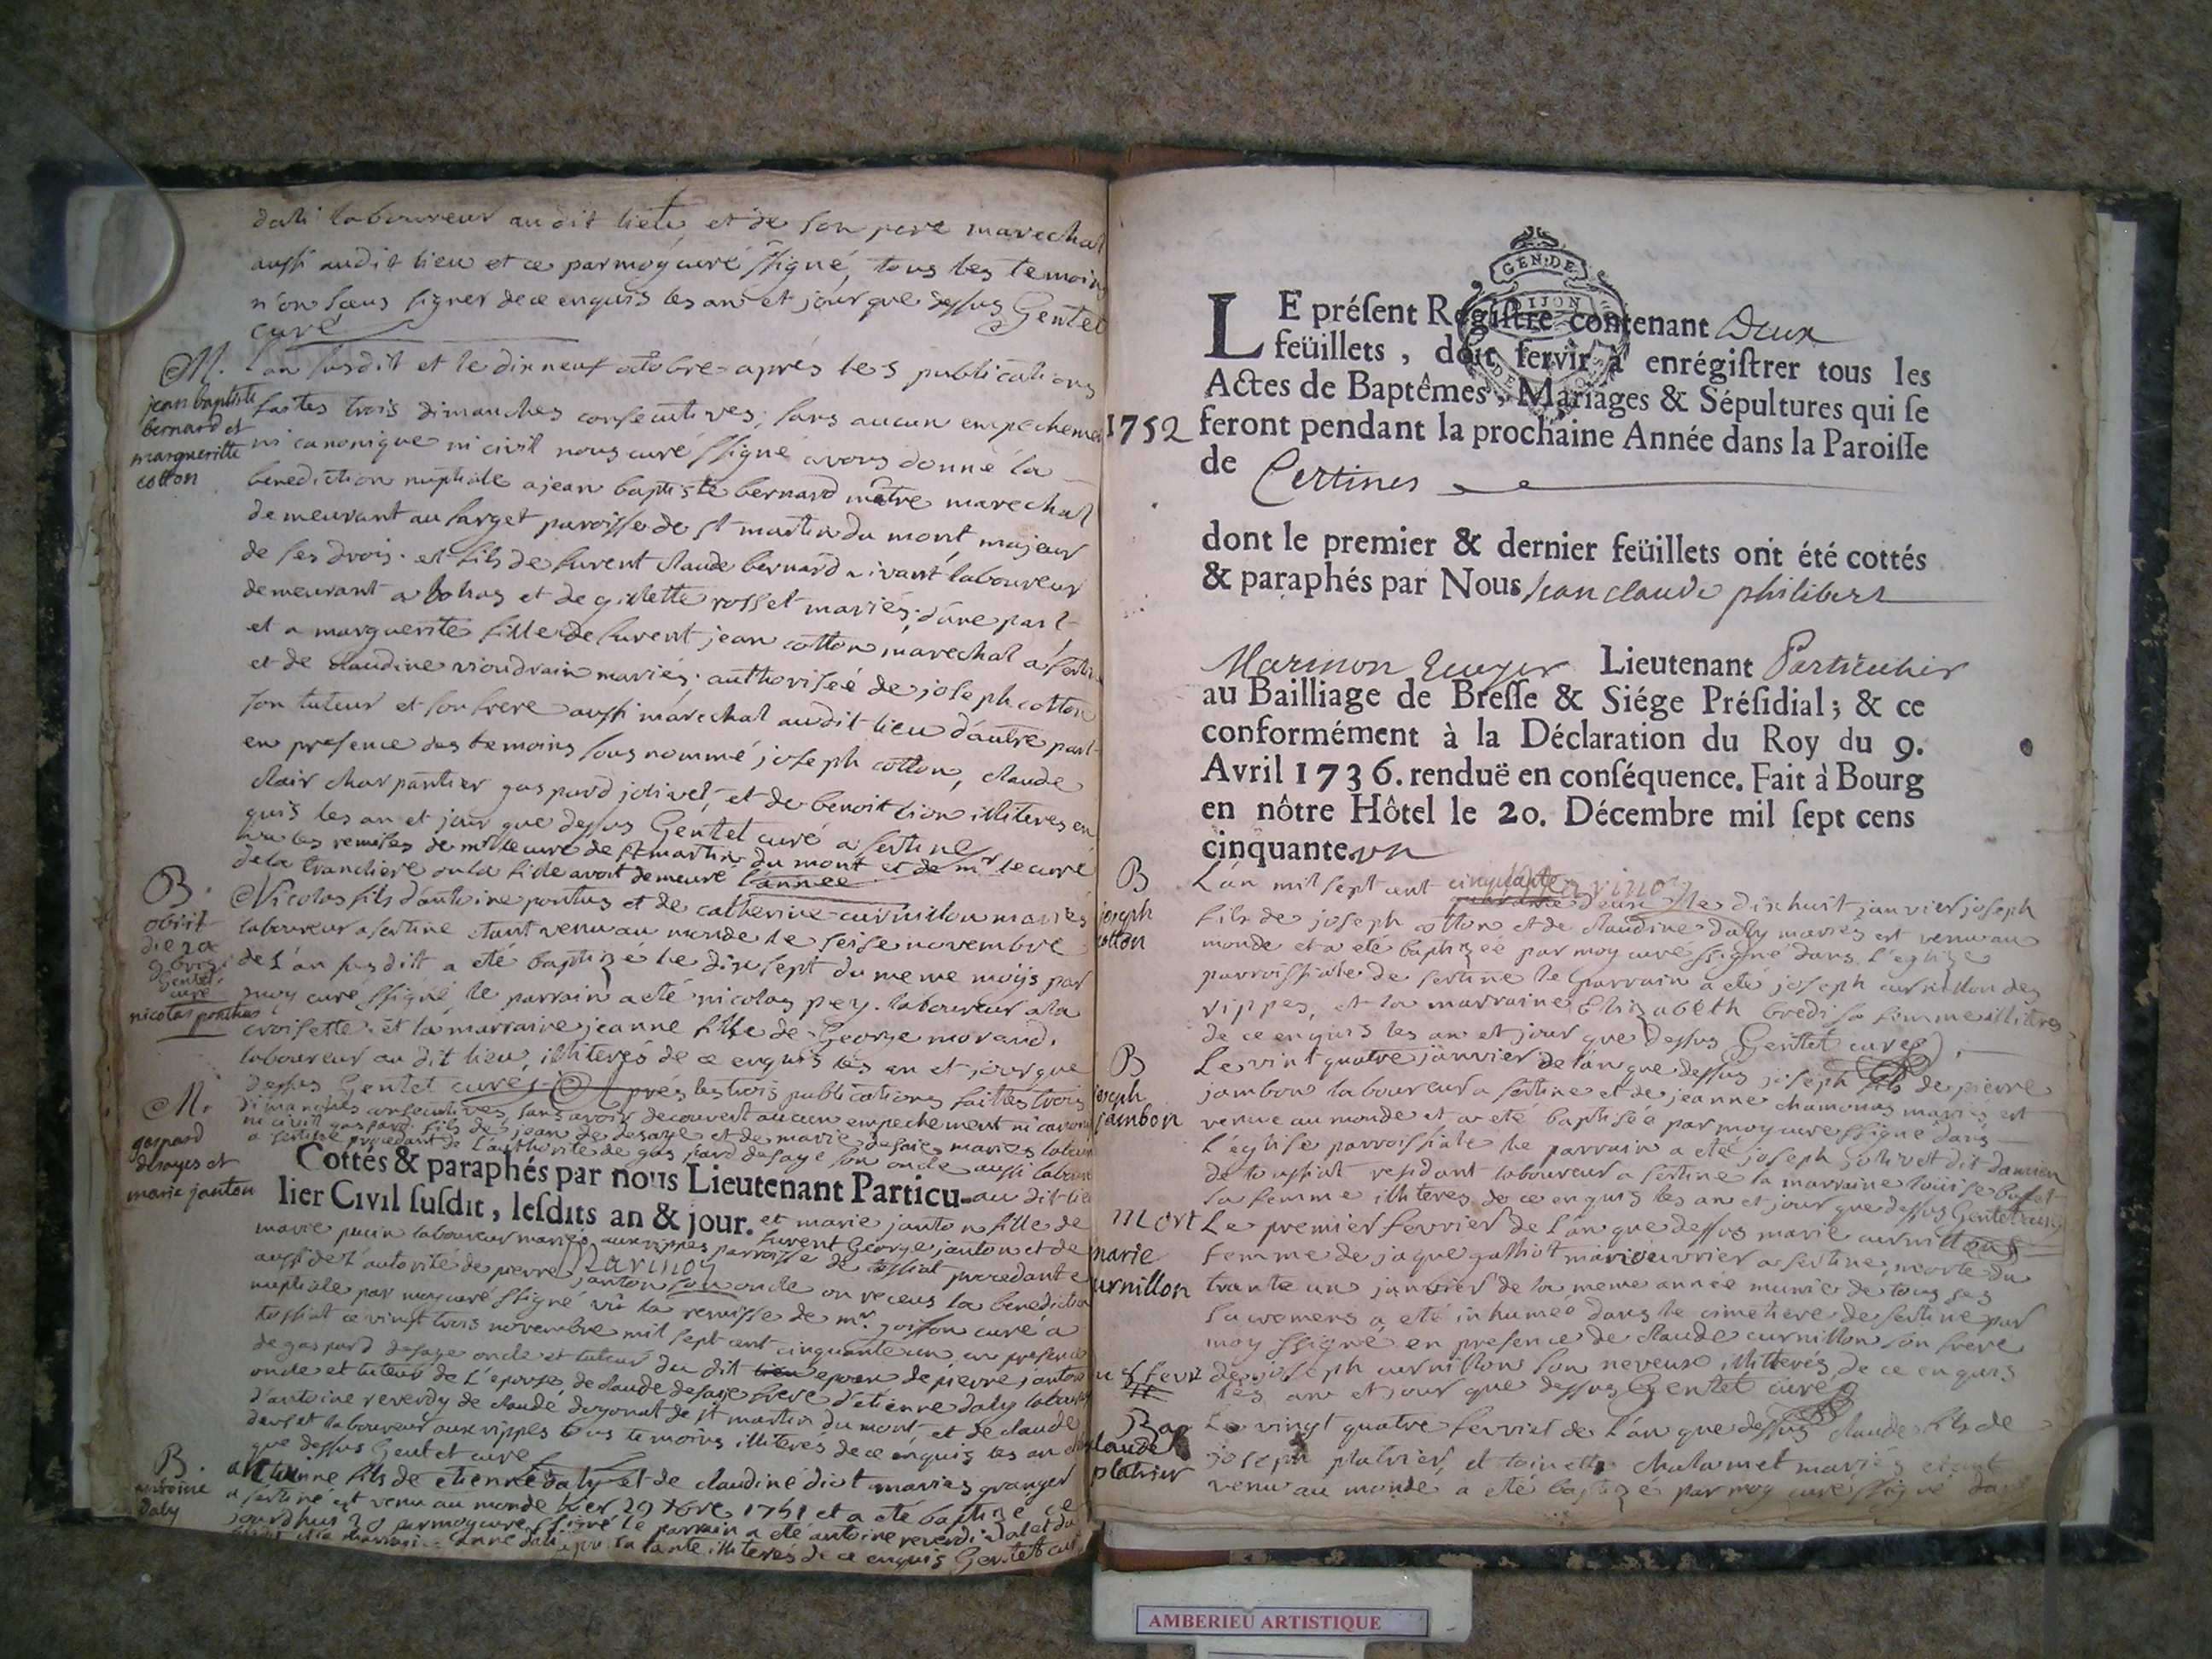 dali laboureur audit lieu et de son pere marechal
aussi audit lieu et ce par moy curé ssigné, tous les temoins
n'on sceus signer de ce enquis les an et jour que dessus Gentet
curé
M.
jean baptiste
bernard et
margueritte
cotton
l'an susdit et le dixneuf octobre aprés les publications
faites trois dimanches consecutives, sans aucun empecheme
ni canonique ni civil nous curé ssigné avons donné la
benediction nuptiale a jean baptiste bernard mâtre marechal
demeurant au farget paroisse de st martin du mont majeur
de ses drois et fils de furent claude bernard vivant laboureur
demeurant a bohas et de gillette rosset mariés, d'une part
et a marguerite fille de furent jean cotton marechal a
et de claudine vioudrain mariés, authorisée de joseph cotton
son tuteur et son frere aussi marechal audit lieu d'autre part
en presence des temoins sous nommé joseph cotton, claude
clair charpantier gaspard jolivet, et de benoit lion illiteres en
quis les an et jour que dessus Gentet curé a sertine
vu les remises de mr le curé de st martin du mont et de mr le curé
de la tranclière ou la fille avoit demeuré l'année
B.
obiit
nicolas ponthus
Nicolas fils d'antoine pontus et de catherine curnillon mariés
laboureur a sertine etant venu au monde le seise novembre
de l'an susdit a eté baptizé le dixsept du meme moys par
moy curé ssigné, le parrain a eté nicolas pey laboureur a la
croisette et la marraine jeanne fille de George morand,
laboureur au dit lieu, illiterés de ce enquis les an et jour que
dessus Gentet curé Aprés les trois publications faittes trois
M.
gaspard
desayes et
marie janton
dimanches consecutives, sans avoir decouvert aucun empechement ni canoni
ni civil gaspard fils de jean de desaye et de marie desaie mariés labour
a sertine procedant de l'authorité de gaspard desaye son oncle aussi labour
Cottés & paraphés par nous Lieutenant Particu- au dit lieu
lier Civil susdit, lesdits an & jour. et marie janton fille de
furent George janton et de
marie puin laboureur mariés aux rippes parroisse de tossiat procedante
aussi de l'autorité de pierre janton son oncle on receus la benediction
Marinon
nuptiale par moy curé ssigné vû la remisse de mr. goisson curé a
tossiat ce vingt trois novembre mil sept cent cinquante un en presence
de gaspard desaye oncle et tuteur du dit epoux de pierre janton
oncle et tuteur de l'epouse, de claude desaye frere d'etienne daly labour
d'antoine reverdy de claude dogonat de st martin du mont, et de claude
laboureur aux rippes tous temoins illiterés de ce enquis les an
que dessus Gentet curé
B.
antoine
daly
antoinne fils de etienne daly et de claudine diot mariés granger
a sertine est venu au monde hier 29 xbre 1751 et a eté baptizé ce
jourdhui 30 par moy curé ssigné le parrain a eté antoine reverdi
sa tante illiterés de ce enquis Gentet curé
GEN. DE
DIJON
LE présent Regiſtre contenant Deux
feüillets, doit ſervir à enrégiſtrer tous les
Actes de Baptêmes, Mariages & Sépultures qui ſe
1752 feront pendant la prochaine Année dans la Paroiſſe
de Certines
dont le premier & dernier feüillets ont été cottés
& paraphés par Nous Jean claude philibert
Marinon Ecuyer Lieutenant Particulier
au Bailliage de Breſſe & Siége Préſidial; & ce
conformément à la Déclaration du Roy du 9.
Avril 1736. renduë en conſéquence. Fait à Bourg
en nôtre Hôtel le 20. Décembre mil ſept cens
cinquante un
B
joseph
cotton
L'an mil sept cent cinquante deux le dixhuit janvier joseph
Marinon
fils de joseph cotton et de claudine daly mariés est venu au
monde et a eté baptizéé par moy curé ssigné dans l'eglize
parroissiale de sertine le parrain a eté joseph curnillon des
rippes, et la marraine Elizabeth bredi sa femme illiterés
de ce enquis les an et jour que dessus Gentet curé
B
joseph
jambon
Le vint quatre janvier de l'an que dessus joseph fils de pierre
jambon laboureur a sertine et de jeanne chamonas mariés est
venue au monde et a eté baptisée par moy curé ssigné dans
l'eglise parroissiale le parrain a eté joseph jolivet dit damien
de tossiat residant laboureur a sertine la marraine loüise bufet
sa femme illiteres de ce enquis les an et jour que dessus Gentet curé
Mort
marie
urnillon
Le premier fevrier de l'an que dessus marie curnillon
femme de jaque gathiot mari ouvrier a sertine, morte du
trante un janvier de la meme année munie de tous ses
sacremens a eté inhumée dans le cimetiere de sertine par
moy ssigné en presence de claude curnillon son frere
de joseph curnillon son neveux illitterés de ce enquis
les an et jour que dessus Gentet curé
Bap
claude
platrier
Le vingt quatre fevrier de l'an que dessus claude fils de
joseph platrier, et toinette chalamet mariés etant
venu au monde a eté baptizé par moy curé ssigné da
AMBERIEU ARTISTIQUE